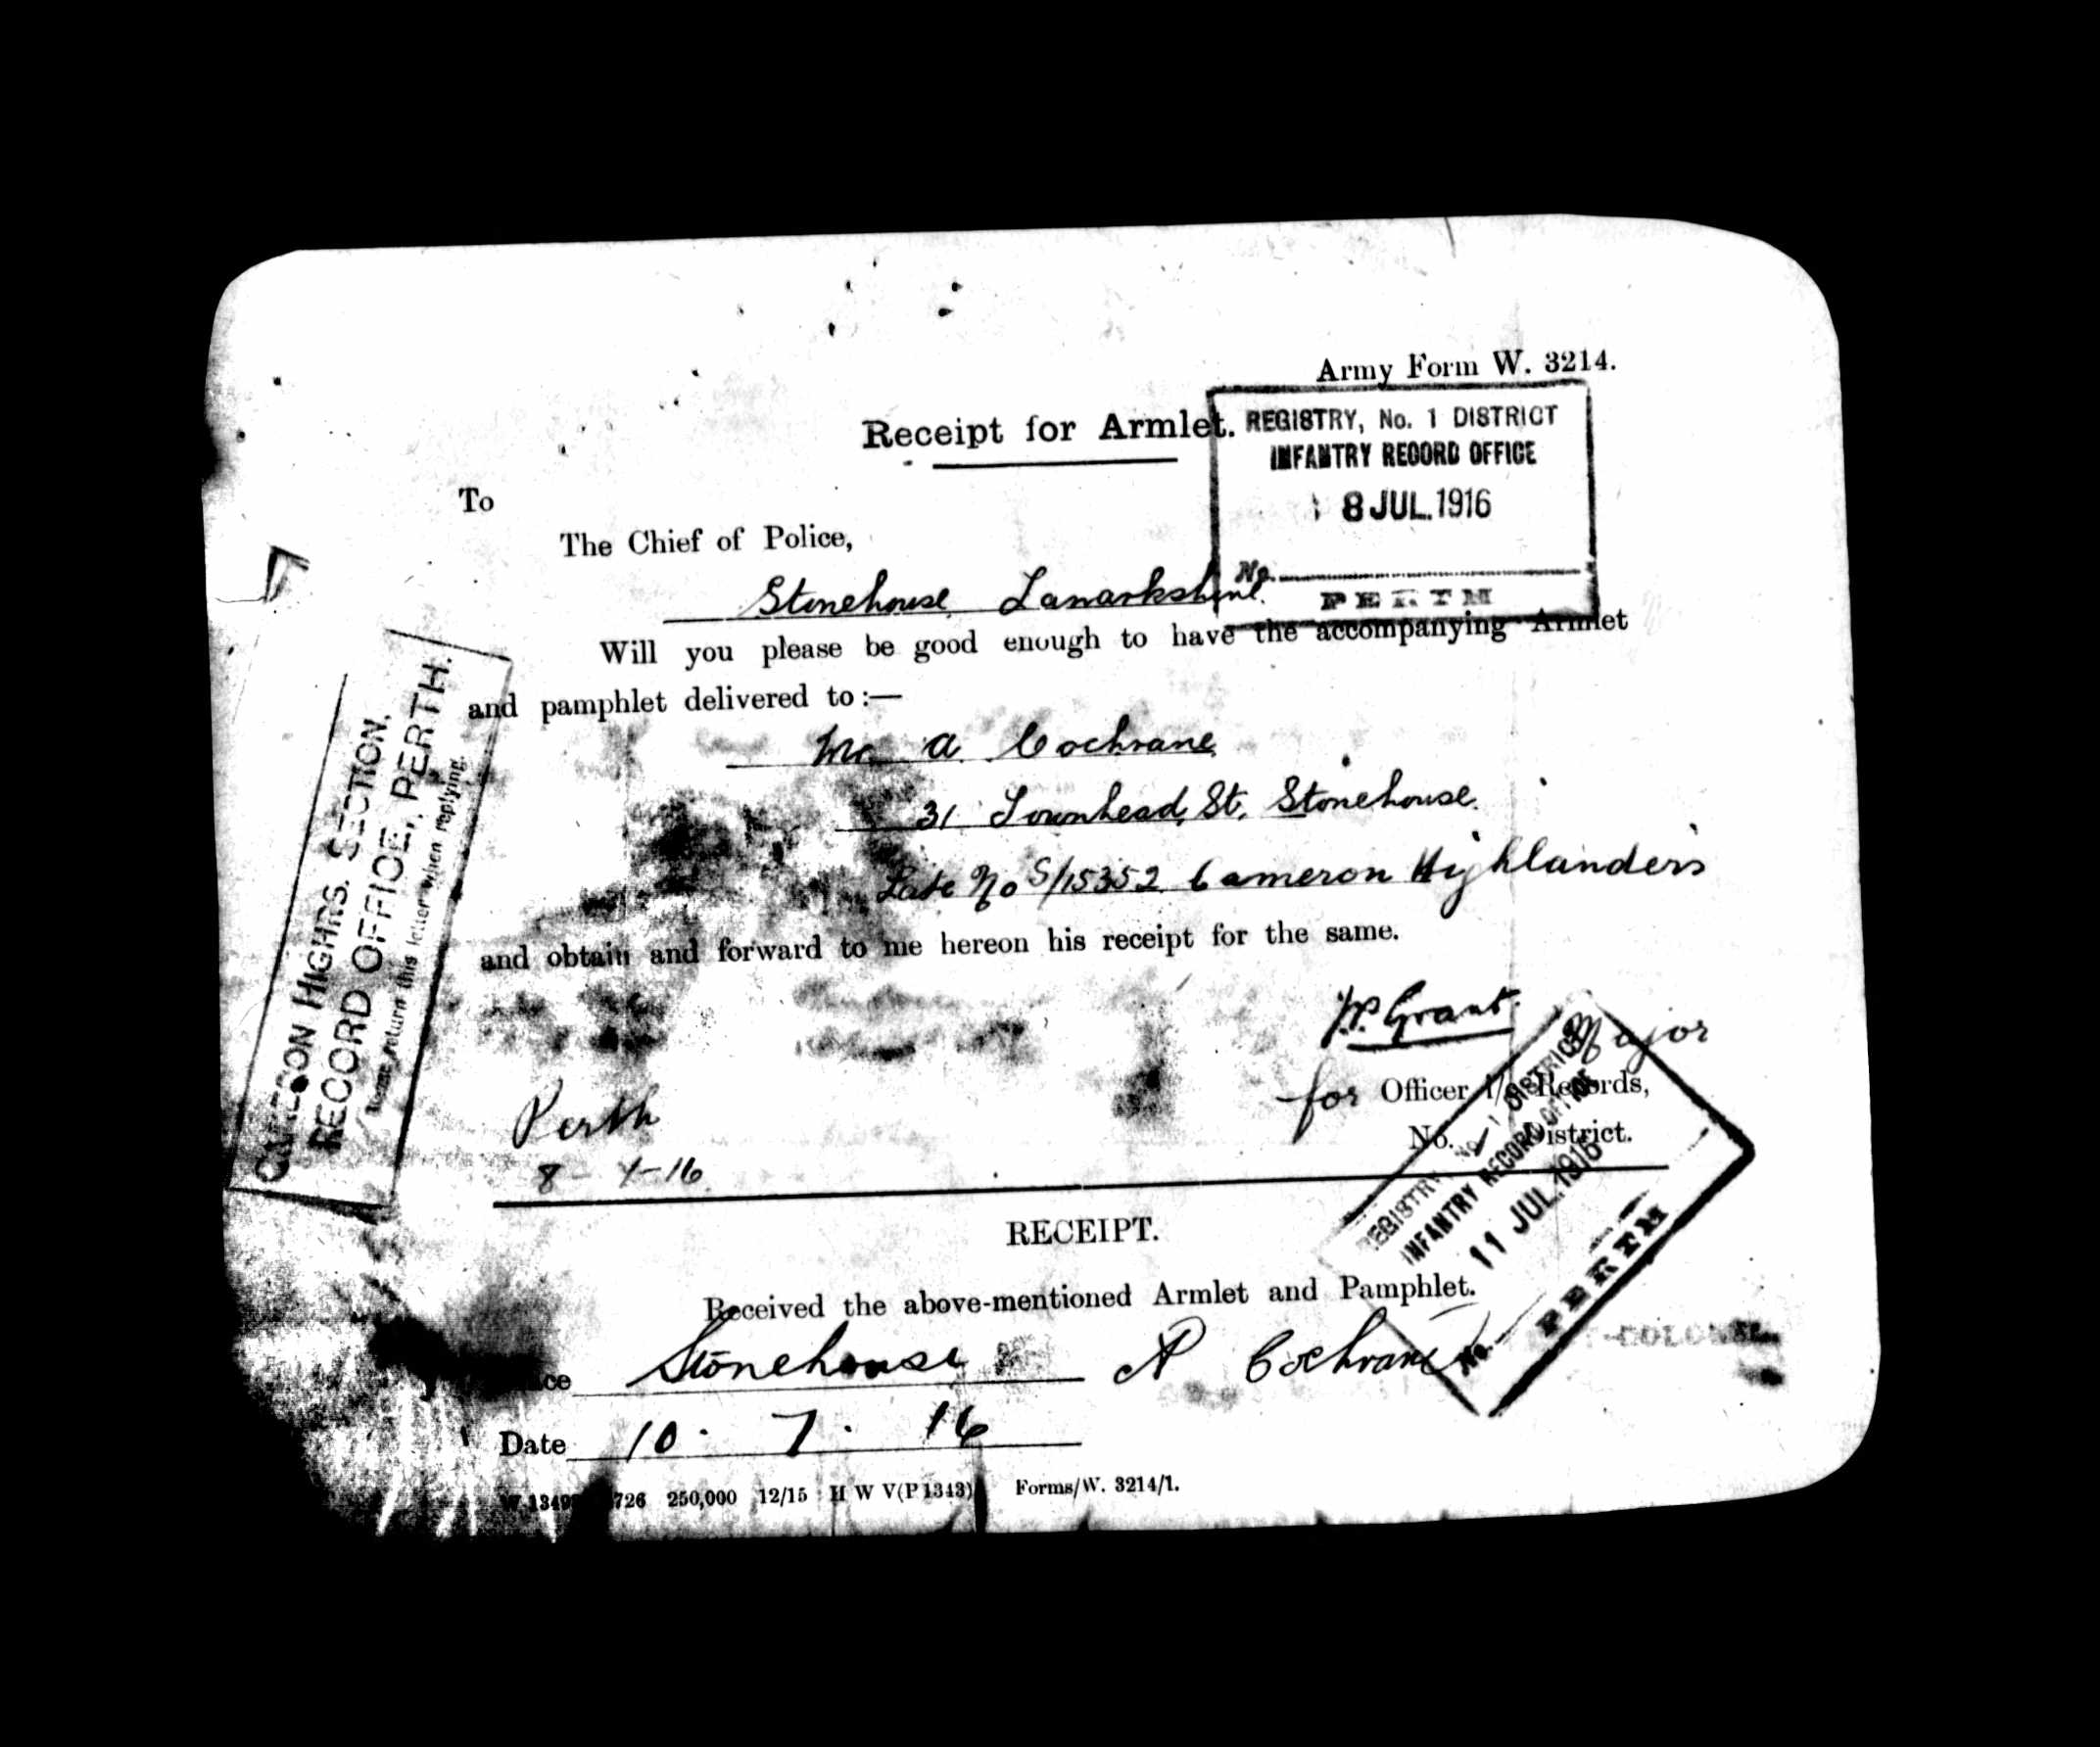 Army Form W. 3214.
Receipt for Armlet.
REGISTRY, No. 1 DISTRICT
INFANTRY RECORD OFFICE
8 JUL. 1916
No.
PERTH
To
The Chief of Police,
Stonehouse Lanarkshire.
Will you please be good enough to have the accompanying Armlet
and pamphlet delivered to :—
Mr A. Cochrane
31 Townhead St, Stonehouse.
Late No S/15352 Cameron Highlanders
and obtain and forward to me hereon his receipt for the same.
CAMERON HIGHRS. SECTION,
RECORD OFFICE, PERTH.
return this letter when replying.
Grant
Major
for Officer i/c Records,
No. 1 District.
Perth
8-7-16
REGISTRY No. 1 DISTRICT
INFANTRY RECORD OFFICE
11 JUL. 1916
No.
PERTH
RECEIPT.
Received the above-mentioned Armlet and Pamphlet.
Stonehouse A Cochrane
Date 10. 7. 16
726 250,000 12/15 H W V(P 1343) Forms/W. 3214/1.